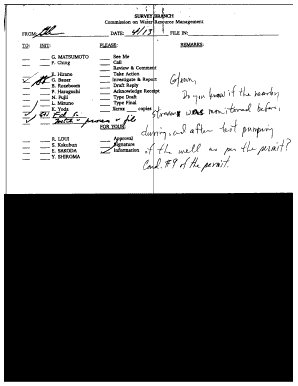 SURVEY BRANCH
Commission on Water Resource Management
FROM: DATE: 4/13 FILE IN:
TO: INIT: PLEASE: REMARKS:
G. MATSUMOTO See Me
P. Ching Call
Review & Comment
E. Hirano Take Action
G. Bauer Investigate & Report
B. Roseboom Draft Reply
F. Haraguchi Acknowledge Receipt
N. Fujii Type Draft
L. Mizuno Type Final
K. Yoda Xerox copies
file
FOR YOUR:
R. LOUI Approval
S. Kokubun Signature
E. SAKODA Information
Y. SHIROMA
Glenn,
Do you know if the nearby
streams was monitored before,
during, and after test pumping
of the well as per the permit?
Cond. #9 of the permit.